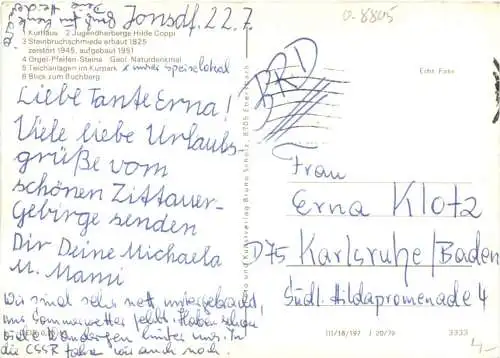 Jonsdf. 22.7.
Kurhaus 2 Jugendherberge Hilde Coppi
3 Steinbruchschmiede erbaut 1825
zerstört 1945, aufgebaut 1951
4 Orgel-Pfeifen-Steine Geol. Naturdenkmal
5 Teichanlagen im Kurpark x unser Speiselokal
6 Blick zum Buchberg
Liebe Tante Erna!
Viele liebe Urlaubs-
grüße vom
schönen Zittauer-
Gebirge senden
Dir Deine Michaela
u. Mami
Wir sind sehr nett untergebracht,
nur Sommerwetter fehlt. Haben schon
viele Wanderungen hinter uns. In
die CSSR fahren wir auch noch.
Foto- und Kunstverlag Bruno Scholz, 8705 Ebersbach
o-8805
Echt Foto
BRD
Frau
Erna Klotz
D75 Karlsruhe/Baden
Südl. Hildapromenade 4
III/18/197 20/79 3333
4,-